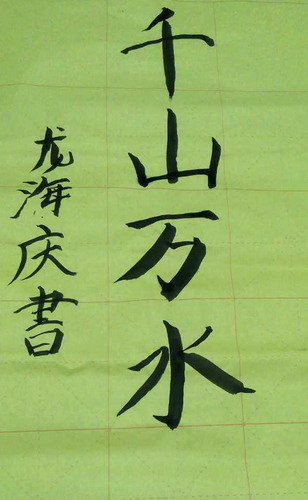 千山万水
龙海庆書